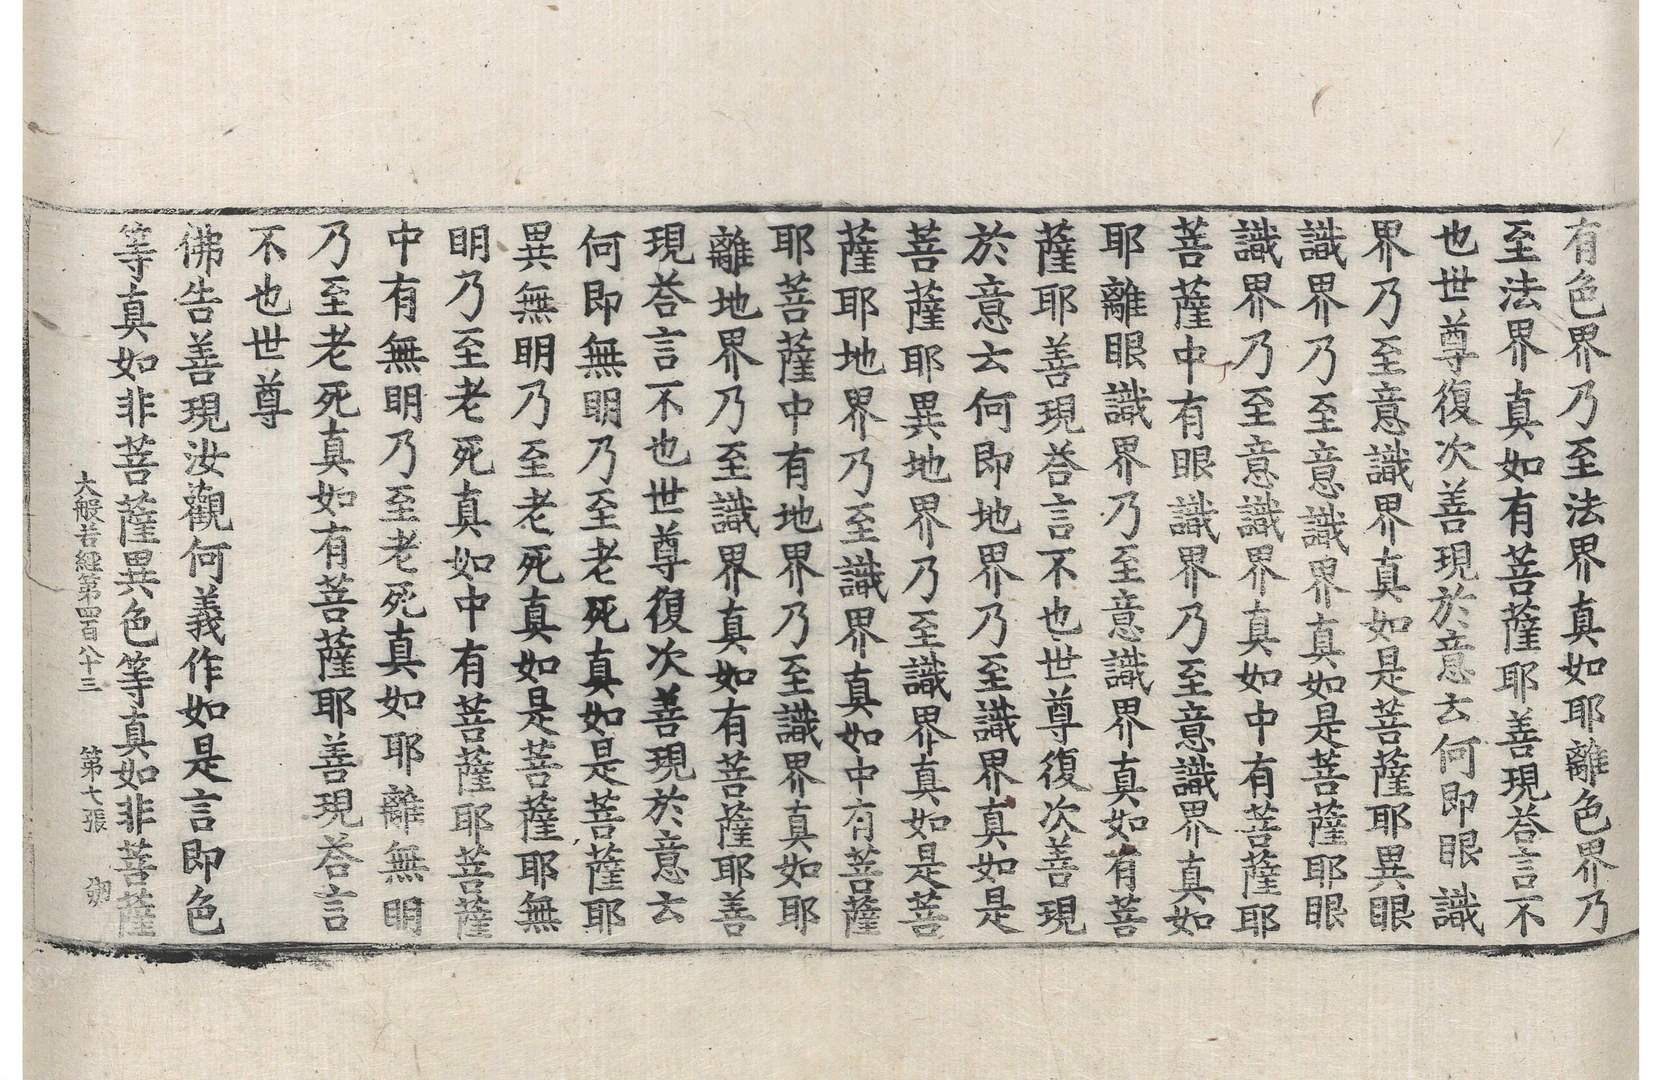 有色界乃至法界真如耶離色界乃
至法界真如有菩薩耶善現荅言不
也世尊復次善現於意云何即眼識
界乃至意識界真如是菩薩耶異眼
識界乃至意識界真如是菩薩耶眼
識界乃至意識界真如中有菩薩耶
菩薩中有眼識界乃至意識界真如
耶離眼識界乃至意識界真如有菩
薩耶善現荅言不也世尊復次善現
於意云何即地界乃至識界真如是
菩薩耶異地界乃至識界真如是菩
薩耶地界乃至識界真如中有菩薩
耶菩薩中有地界乃至識界真如耶
離地界乃至識界真如有菩薩耶善
現荅言不也世尊復次善現於意云
何即無明乃至老死真如是菩薩耶
異無明乃至老死真如是菩薩耶無
明乃至老死真如中有菩薩耶菩薩
中有無明乃至老死真如耶離無明
乃至老死真如有菩薩耶善現荅言
不也世尊
佛告善現汝觀何義作如是言即色
等真如非菩薩異色等真如非菩薩
大般若經第四百八十三 第七張